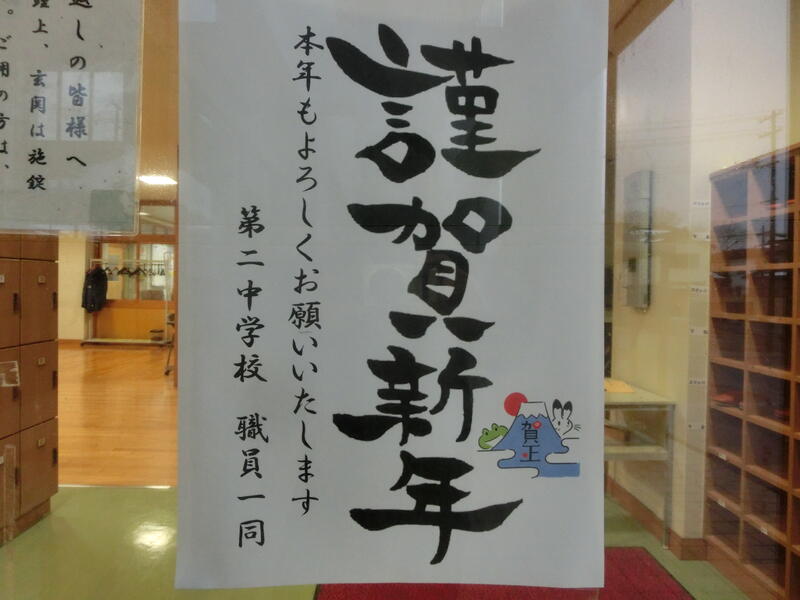 謹賀新年
本年もよろしくお願いいたします
第二中学校 職員一同
賀正
返しの皆様へ
玄関は施錠
ご用の方は、